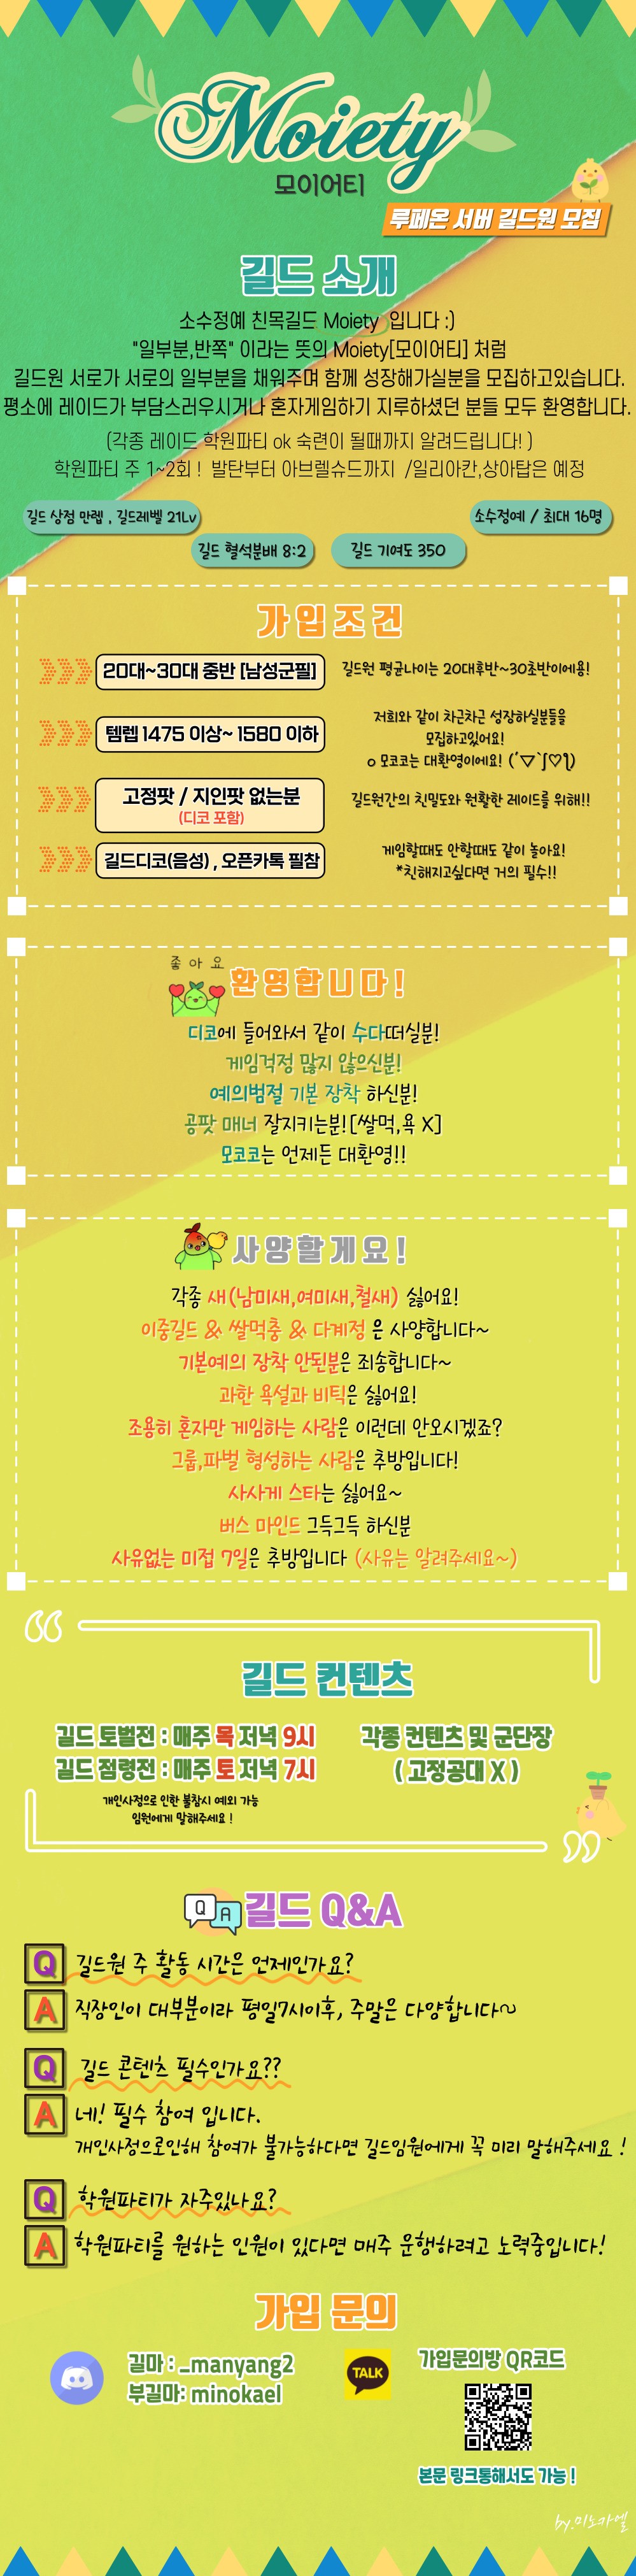 Moiety
모이어티
루페온 서버 길드원 모집
길드 소개
소수정예 친목길드 Moiety 입니다 :)
"일부분,반쪽" 이라는 뜻의 Moiety[모이어티] 처럼
길드원 서로가 서로의 일부분을 채워주며 함께 성장해가실분을 모집하고있습니다.
평소에 레이드가 부담스러우시거나 혼자게임하기 지루하셨던 분들 모두 환영합니다.
(각종 레이드 학원파티 ok 숙련이 될때까지 알려드립니다! )
학원파티 주 1~2회 ! 발탄부터 아브렐슈드까지 /일리아칸,상아탑은 예정
길드 상점 만렙 , 길드레벨 21Lv
소수정예 / 최대 16명
길드 혈석분배 8:2
길드 기여도 350
가입조건
20대~30대 중반 [남성군필]
길드원 평균나이는 20대후반~30초반이에용!
템렙 1475 이상~ 1580 이하
저희와 같이 차근차근 성장하실분들을
모집하고있어요!
ㅇ 모코코는 대환영이에요! (´▽`ʃ♡ƪ)
고정팟 / 지인팟 없는분
(디코 포함)
길드원간의 친밀도와 원활한 레이드를 위해!!
길드디코(음성) , 오픈카톡 필참
게임할때도 안할때도 같이 놀아요!
*친해지고싶다면 거의 필수!!
좋아요
환영합니다!
디코에 들어와서 같이 수다떠실분!
게임걱정 많지 않으신분!
예의범절 기본 장착 하신분!
공팟 매너 잘지키는분![쌀먹,욕 X]
모코코는 언제든 대환영!!
사양할게요!
각종 새(남미새,여미새,철새) 싫어요!
이중길드 & 쌀먹충 & 다계정 은 사양합니다~
기본예의 장착 안된분은 죄송합니다~
과한 욕설과 비틱은 싫어요!
조용히 혼자만 게임하는 사람은 이런데 안오시겠죠?
그룹,파벌 형성하는 사람은 추방입니다!
사사게 스타는 싫어요~
버스 마인드 그득그득 하신분
사유없는 미접 7일은 추방입니다 (사유는 알려주세요~)
길드 컨텐츠
길드 토벌전 : 매주 목 저녁 9시
길드 점령전 : 매주 토 저녁 7시
개인사정으로 인한 불참시 예외 가능
임원에게 말해주세요 !
각종 컨텐츠 및 군단장
( 고정공대 X )
Q A
길드 Q&A
Q 길드원 주 활동 시간은 언제인가요?
A 직장인이 대부분이라 평일7시이후, 주말은 다양합니다~
Q 길드 콘텐츠 필수인가요??
A 네! 필수 참여 입니다.
개인사정으로인해 참여가 불가능하다면 길드임원에게 꼭 미리 말해주세요 !
Q 학원파티가 자주있나요?
A 학원파티를 원하는 인원이 있다면 매주 운행하려고 노력중입니다!
가입 문의
길마 : _manyang2
부길마: minokael
TALK
가입문의방 QR코드
본문 링크통해서도 가능 !
by.미노카엘